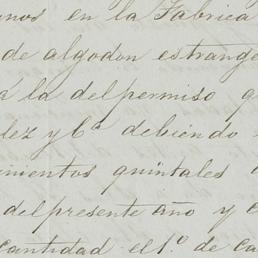 en la Fabrica
de algodon estrange
a la del permiso
lez y Cª debiendo
quintales
del presente año y
cantidad el 1.º de